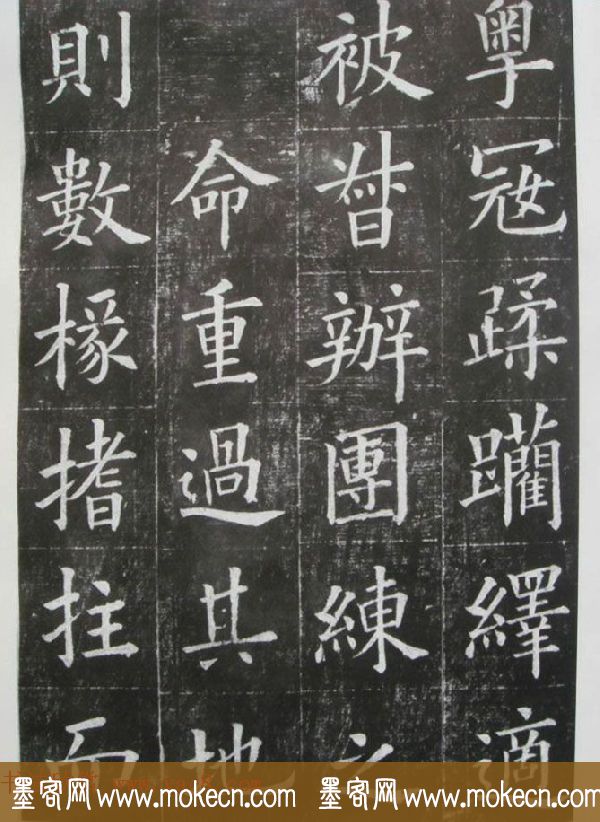 粵冦蹂躪繹適
被督辦團練之
命重過其地
則數椽搘拄而
墨客网 www.mokecn.com 墨客网 www.mokecn.com